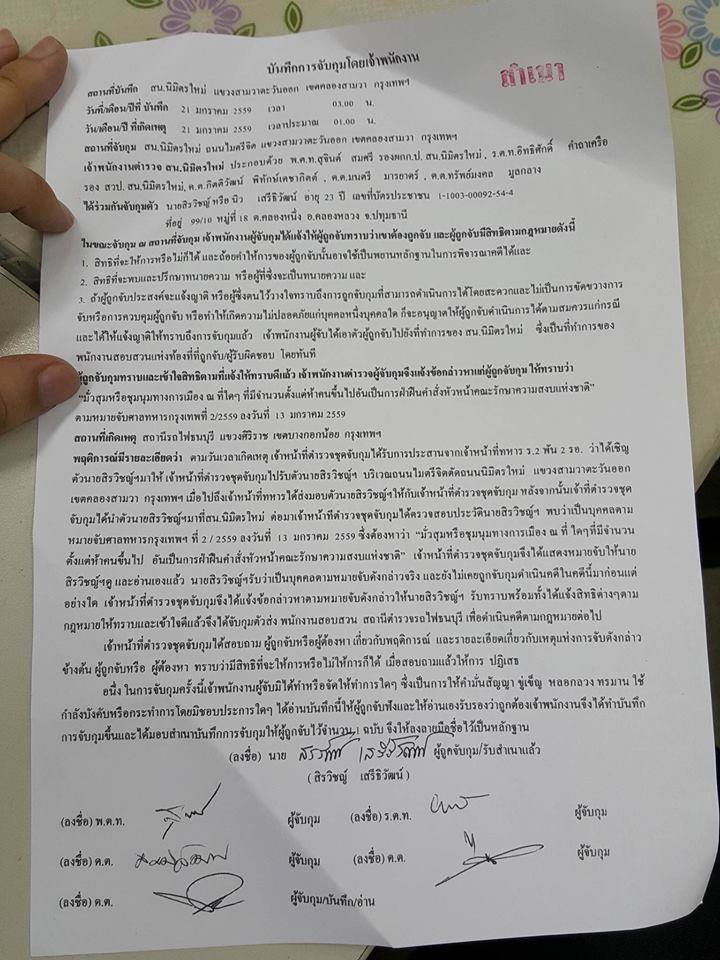 บันทึกการจับกุมโดยเจ้าพนักงาน
สำเนา
สถานที่บันทึก สน.นิมิตรใหม่ แขวงสามวาตะวันออก เขตคลองสามวา กรุงเทพฯ
วัน/เดือน/ปีที่ บันทึก 21 มกราคม 2559 เวลา 03.00 น.
วัน/เดือน/ปี ที่เกิดเหตุ 21 มกราคม 2559 เวลาประมาณ 01.00 น.
สถานที่จับกุม สน.นิมิตรใหม่ ถนนไมตรีจิต แขวงสามวาตะวันออก เขตคลองสามวา กรุงเทพฯ
เจ้าพนักงานตำรวจ สน.นิมิตรใหม่ ประกอบด้วย พ.ต.ท.สุจินต์ สมศรี รองผกก.ป. สน.นิมิตรใหม่ , ร.ต.ท.อิทธิศักดิ์ คำถาเครือ
รอง สวป. สน.นิมิตรใหม่, ด.ต.กิตติวัฒน์ พิทักษ์เดชากิตต์ , ด.ต.มนตรี มารยาตร์ , ด.ต.ทรัพย์มงคล มูลกลาง
ได้ร่วมกันจับกุมตัว นายสิรวิชญ์ หรือ นิว เสรีธิวัฒน์ อายุ 23 ปี เลขที่บัตรประชาชน
ที่อยู่ 99/10 หมู่ที่ 18 ต.คลองหนึ่ง อ.คลองหลวง จ.ปทุมธานี
ในขณะจับกุม ณ สถานที่จับกุม เจ้าพนักงานผู้จับกุมได้แจ้งให้ผู้ถูกจับทราบว่าเขาต้องถูกจับ และผู้ถูกจับมีสิทธิตามกฎหมายดังนี้
1. สิทธิที่จะให้การหรือไม่ก็ได้ และถ้อยคำให้การของผู้ถูกจับนั้นอาจใช้เป็นพยานหลักฐานในการพิจารณาคดีได้และ
2. สิทธิที่จะพบและปรึกษาทนายความ หรือผู้ที่ซึ่งจะเป็นทนายความ และ
3. ถ้าผู้ถูกจับประสงค์จะแจ้งญาติ หรือผู้ซึ่งตนไว้วางใจทราบถึงการถูกจับกุมที่สามารถดำเนินการได้โดยสะดวกและไม่เป็นการขัดขวางการ
จับหรือการควบคุมผู้ถูกจับ หรือทำให้เกิดความไม่ปลอดภัยแก่บุคคลหนึ่งบุคคลใด ก็จะอนุญาตให้ผู้ถูกจับดำเนินการได้ตามสมควรแก่กรณี
และได้ให้แจ้งญาติให้ทราบถึงการจับกุมแล้ว เจ้าพนักงานผู้จับได้เอาตัวผู้ถูกจับไปยังที่ทำการของ สน.นิมิตรใหม่ ซึ่งเป็นที่ทำการของ
พนักงานสอบสวนแห่งท้องที่ที่ถูกจับ/ผู้รับผิดชอบ โดยทันที
ผู้ถูกจับกุมทราบและเข้าใจสิทธิตามที่แจ้งให้ทราบดีแล้ว เจ้าพนักงานตำรวจผู้จับกุมจึงแจ้งข้อกล่าวหาแก่ผู้ถูกจับกุม ให้ทราบว่า
“มั่วสุมหรือชุมนุมทางการเมือง ณ ที่ใดๆ ที่มีจำนวนตั้งแต่ห้าคนขึ้นไปอันเป็นการฝ่าฝืนคำสั่งหัวหน้าคณะรักษาความสงบแห่งชาติ”
ตามหมายจับศาลทหารกรุงเทพที่ 2/2559 ลงวันที่ 13 มกราคม 2559
สถานที่เกิดเหตุ สถานีรถไฟธนบุรี แขวงศิริราช เขตบางกอกน้อย กรุงเทพฯ
พฤติการณ์มีรายละเอียดว่า ตามวันเวลาเกิดเหตุ เจ้าหน้าที่ตำรวจชุดจับกุมได้รับการประสานจากเจ้าหน้าที่ทหาร ร.2 พัน 2 รอ. ว่าได้เชิญ
ตัวนายสิรวิชญ์ฯมาให้ เจ้าหน้าที่ตำรวจชุดจับกุมไปรับตัวนายสิรวิชญ์ฯ บริเวณถนนไมตรีจิตตัดถนนนิมิตรใหม่ แขวงสามวาตะวันออก
เขตคลองสามวา กรุงเทพฯ เมื่อไปถึงเจ้าหน้าที่ทหารได้ส่งมอบตัวนายสิรวิชญ์ฯให้กับเจ้าหน้าที่ตำรวจชุดจับกุม หลังจากนั้นเจ้าที่ตำรวจชุด
จับกุมได้นำตัวนายสิรวิชญ์ฯมาที่สน.นิมิตรใหม่ ต่อมาเจ้าหน้าที่ตำรวจชุดจับกุมได้ตรวจสอบประวัตินายสิรวิชญ์ฯ พบว่าเป็นบุคคลตาม
หมายจับศาลทหารกรุงเทพฯ ที่ 2 / 2559 ลงวันที่ 13 มกราคม 2559 ซึ่งต้องหาว่า “มั่วสุมหรือชุมนุมทางการเมือง ณ ที่ ใดๆที่มีจำนวน
ตั้งแต่ห้าคนขึ้นไป อันเป็นการฝ่าฝืนคำสั่งหัวหน้าคณะรักษาความสงบแห่งชาติ” เจ้าหน้าที่ตำรวจชุดจับกุมจึงได้แสดงหมายจับให้นาย
สิรวิชญ์ฯดู และอ่านเองแล้ว นายสิรวิชญ์ฯรับว่าเป็นบุคคลตามหมายจับดังกล่าวจริง และยังไม่เคยถูกจับกุมดำเนินคดีในคดีนี้มาก่อนแต่
อย่างใด เจ้าหน้าที่ตำรวจชุดจับกุมจึงได้แจ้งข้อกล่าวหาตามหมายจับดังกล่าวให้นายสิรวิชญ์ฯ รับทราบพร้อมทั้งได้แจ้งสิทธิต่างๆตาม
กฎหมายให้ทราบและเข้าใจดีแล้วจึงได้จับกุมตัวส่ง พนักงานสอบสวน สถานีตำรวจรถไฟธนบุรี เพื่อดำเนินคดีตามกฎหมายต่อไป
เจ้าหน้าที่ตำรวจชุดจับกุมได้สอบถาม ผู้ถูกจับหรือผู้ต้องหา เกี่ยวกับพฤติการณ์ และรายละเอียดเกี่ยวกับเหตุแห่งการจับดังกล่าว
ข้างต้น ผู้ถูกจับหรือ ผู้ต้องหา ทราบว่ามีสิทธิที่จะให้การหรือไม่ให้การก็ได้ เมื่อสอบถามแล้วให้การ ปฏิเสธ
อนึ่ง ในการจับกุมครั้งนี้เจ้าพนักงานผู้จับมิได้ทำหรือจัดให้ทำการใดๆ ซึ่งเป็นการให้คำมั่นสัญญา ขู่เข็ญ หลอกลวง ทรมาน ใช้
กำลังบังคับหรือกระทำการโดยมิชอบประการใดๆ ได้อ่านบันทึกนี้ให้ผู้ถูกจับฟังและให้อ่านเองรับรองว่าถูกต้องเจ้าพนักงานจึงได้ทำบันทึก
การจับกุมขึ้นและได้มอบสำเนาบันทึกการจับกุมให้ผู้ถูกจับไว้จำนวน 1 ฉบับ จึงให้ลงลายมือชื่อไว้เป็นหลักฐาน
(ลงชื่อ) นาย ผู้ถูกจับกุม/รับสำเนาแล้ว
( สิรวิชญ์ เสรีธิวัฒน์ )
(ลงชื่อ) พ.ต.ท. ผู้จับกุม (ลงชื่อ) ร.ต.ท. ผู้จับกุม
(ลงชื่อ) ด.ต. ผู้จับกุม (ลงชื่อ) ด.ต. ผู้จับกุม
(ลงชื่อ) ด.ต. ผู้จับกุม/บันทึก/อ่าน